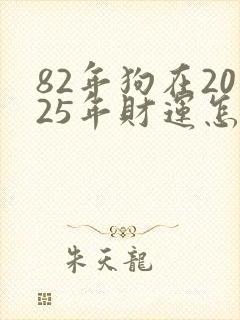 82年狗在20
25年財運怎
朱天龍